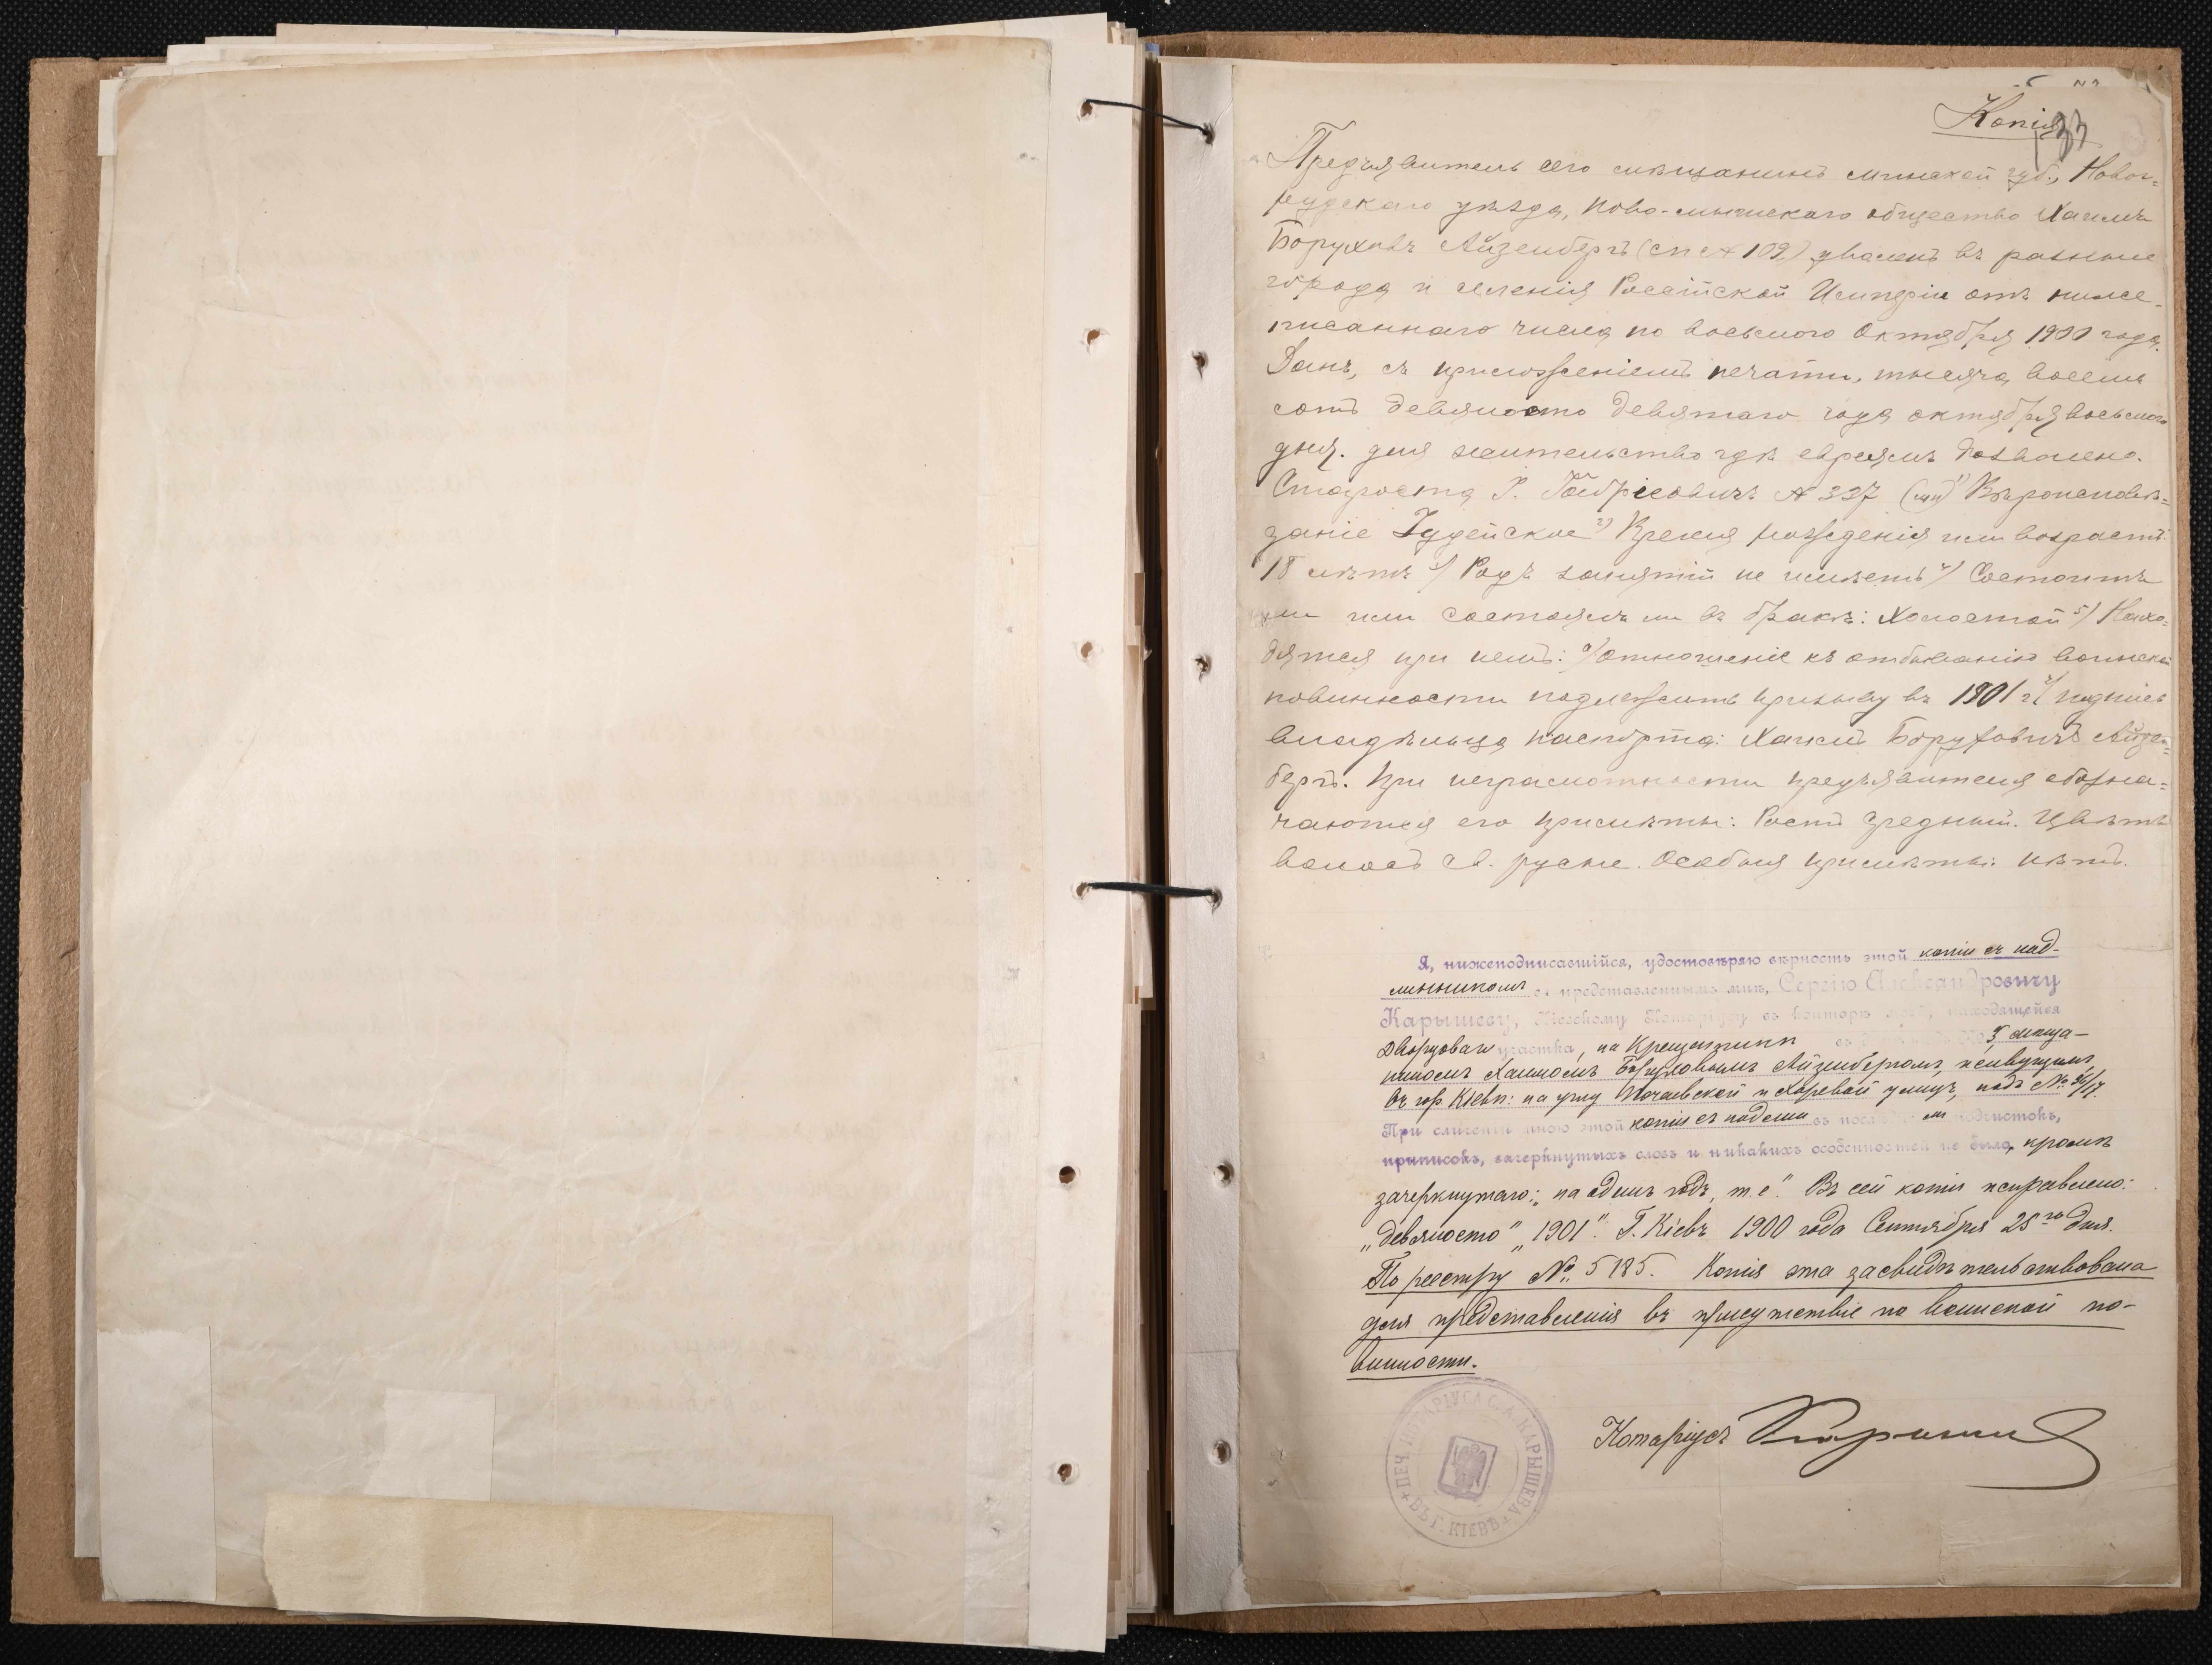 Копія
33
Предъявитель сего мѣщанинъ минской губ., Новог=
рудскаго уѣзда, Ново-мышскаго общество Хаимъ
Боруховъ Айзенбергъ (сп № 109) уволенъ въ разные
города и селенія Россійской Имперіи отъ ниже-
писаннаго числа по восьмого Октября 1900 года.
Данъ, съ приложеніемъ печати, тысяча восемь
сотъ девяносто девятаго года октября восьмого
дня. для жительство гдѣ евреямъ дозволено.
Староста Р. № 327 (мп) 1) Вѣроисповѣ=
даніе Іудейское 2) Время рожденія или возрастъ:
18 лѣтъ 3) Родъ занятій не имѣетъ 4) Состоитъ
ли или состоялъ ли въ бракѣ: Холостой 5) Нахо=
дятся при немъ: 6) отношеніе къ отбыванію воинской
повинности подлежитъ призыву въ 1901 г. 7) подпись
владѣльца паспорта: Хаимъ Боруховичъ Айзен=
бергъ. При неграмотности предъявителя обозна=
чаются его примѣты: Ростъ средній. Цвѣтъ
волосъ св. русые. Особыя примѣты: нѣтъ.
Я, нижеподписавшійся, удостовѣряю вѣрность этой копіи съ под-
линникомъ съ представленнымъ мнѣ, Сергѣю Александровичу
Карышеву, Кіевскому Нотаріусу въ конторѣ моей, находящейся
Дворцоваго участка, на Крещатикѣ мѣща-
ниномъ Хаимомъ Боруховымъ Айзенбергомъ, живущимъ
въ гор. Кіевѣ: на углу Почаевской и Хоревой улицъ, подъ № 36/17.
При сличеніи мною этой копіи съ подлин въ послѣ подчистокъ,
приписокъ, зачеркнутыхъ словъ и никакихъ особенностей не было, кромѣ
зачеркнутаго: „на одинъ годъ, т. е." Въ сей копіи исправлено:
„девяносто" „1901". Г. Кіевъ 1900 года Сентября 28го дня.
По реестру № 5185. Копія эта засвидѣтельствована
для представленія въ присутствіе по воинской по-
винности.
Нотаріусъ Карышевъ
ПЕЧ. НОТАРІУСА С. А. КАРЫШЕВА
ВЪ Г. КІЕВѢ